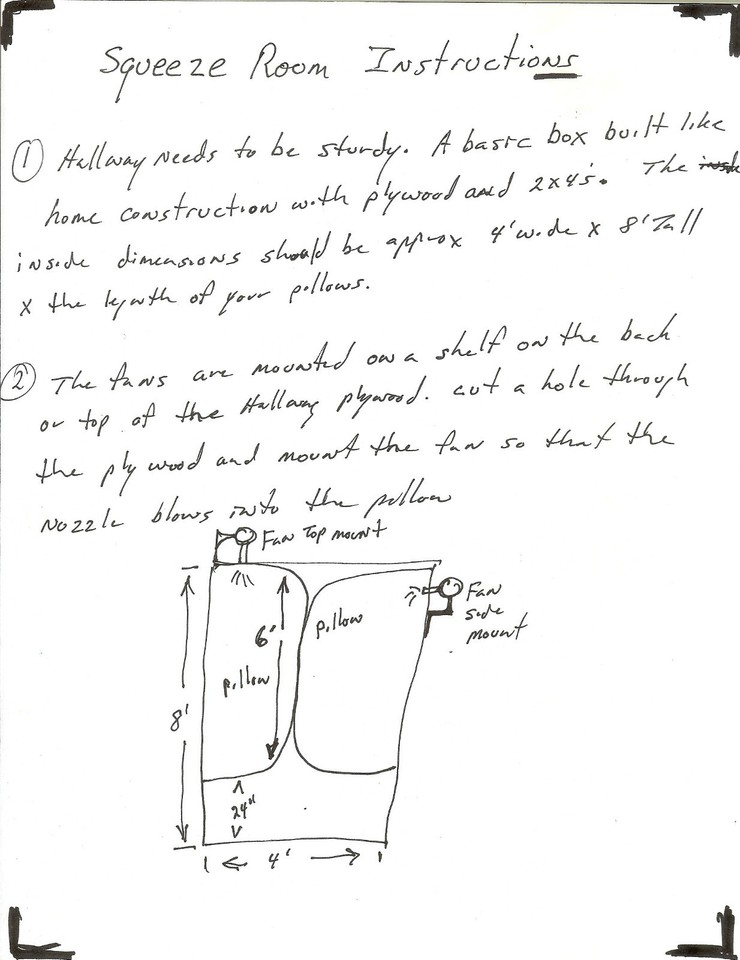 Squeeze Room Instructions
① Hallway needs to be sturdy. A basic box built like
home construction with plywood and 2x4's. The
inside dimensions should be approx 4' wide x 8' Tall
x the length of your pillows.
② The fans are mounted on a shelf on the back
or top of the Hallway plywood. cut a hole through
the plywood and mount the fan so that the
Nozzle blows into the pillow
Fan Top mount
Fan
side
mount
6'
pillow
pillow
8'
24"
4'